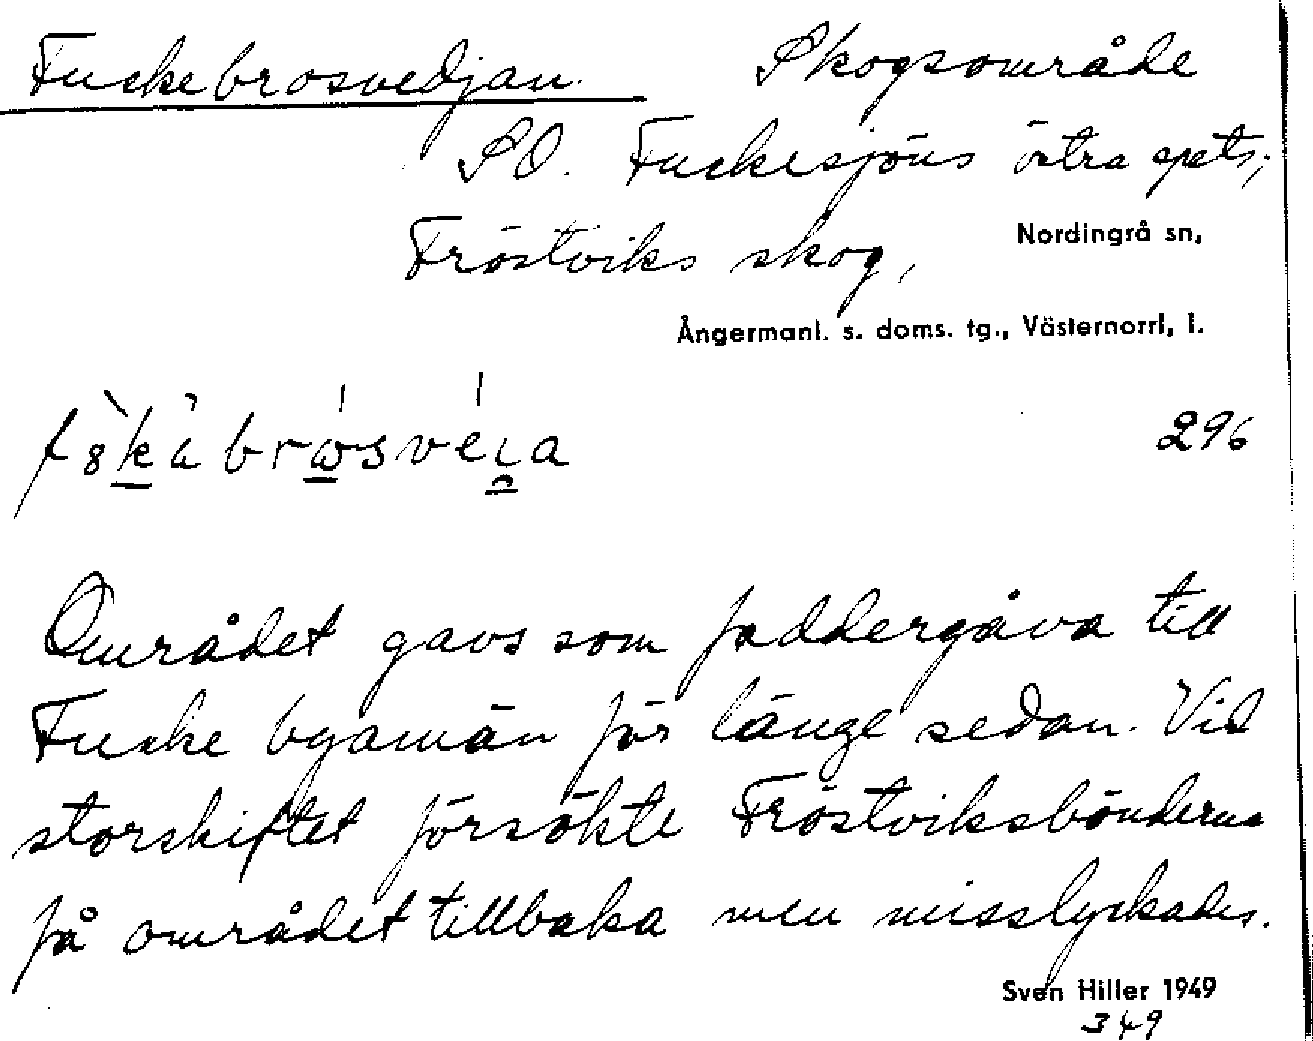 Fuckebrosvedjan. Skogsområde
SO. Fuckesjöns östra spets;
Fröstviks skog, Nordingrå sn,
Ångermanl. s. doms. tg., Västernorrl, l.
296
Området gavs som faddergåva till
Fucke byamän för länge sedan. Vid
storskiftet försökte Fröstviksbönderna
få området tillbaka men misslyckades.
Sven Hiller 1949
349